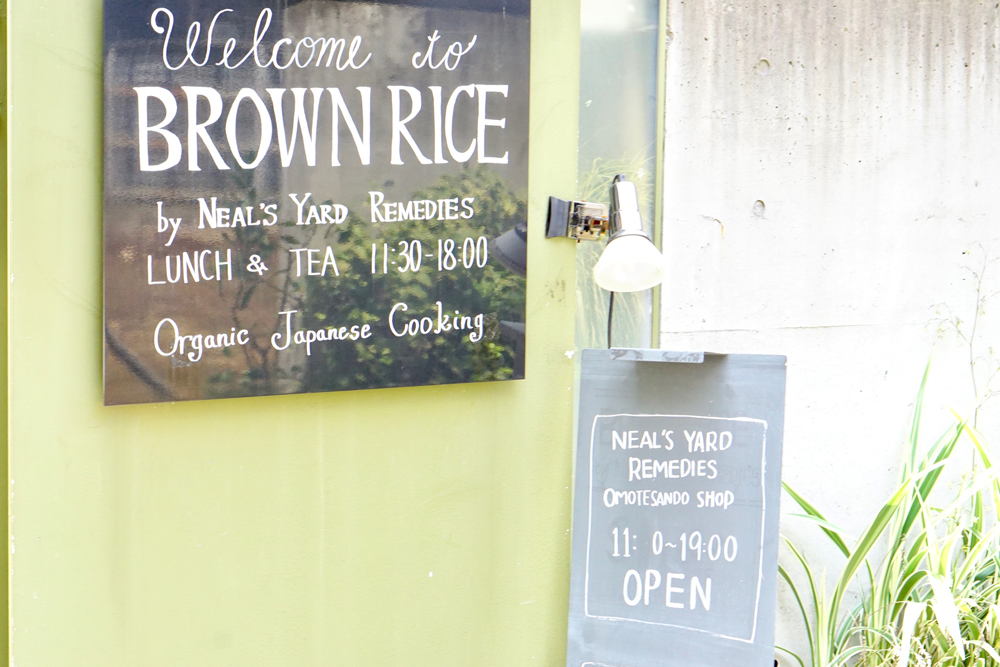 Welcome to
BROWN RICE
by NEAL'S YARD REMEDIES
LUNCH & TEA 11:30-18:00
Organic Japanese Cooking
NEAL'S YARD
REMEDIES
OMOTESANDO SHOP
11: 0~19:00
OPEN